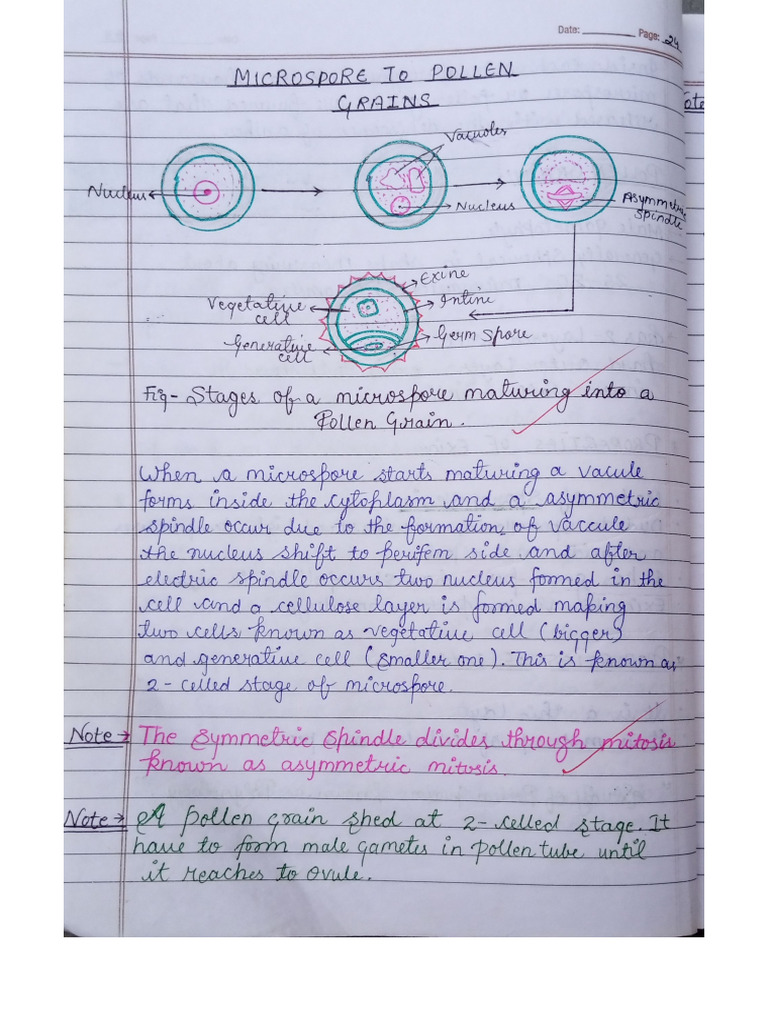 Date: ________ Page: 24
MICROSPORE TO POLLEN
GRAINS
ote
Vacuoles
Nucleus
Nucleus
Asymmetric
Spindle
Exine
Vegetative
cell
Intine
Generative
cell
Germ Spore
Fig- Stages of a microspore maturing into a
Pollen Grain.
When a microspore starts maturing a vacule
forms inside the cytoplasm and a asymmetric
spindle occur due to the formation of vaccule
the nucleus shift to perifem side and after
electric spindle occurs two nucleus formed in the
cell and a cellulose layer is formed making
two cells known as vegetative cell (bigger)
and generative cell (smaller one). This is known as
2-celled stage of microspore.
Note → The Symmetric Spindle divides through mitosis
known as asymmetric mitosis.
Note → A pollen grain shed at 2-celled stage. It
have to form male gametes in pollen tube until
it reaches to ovule.